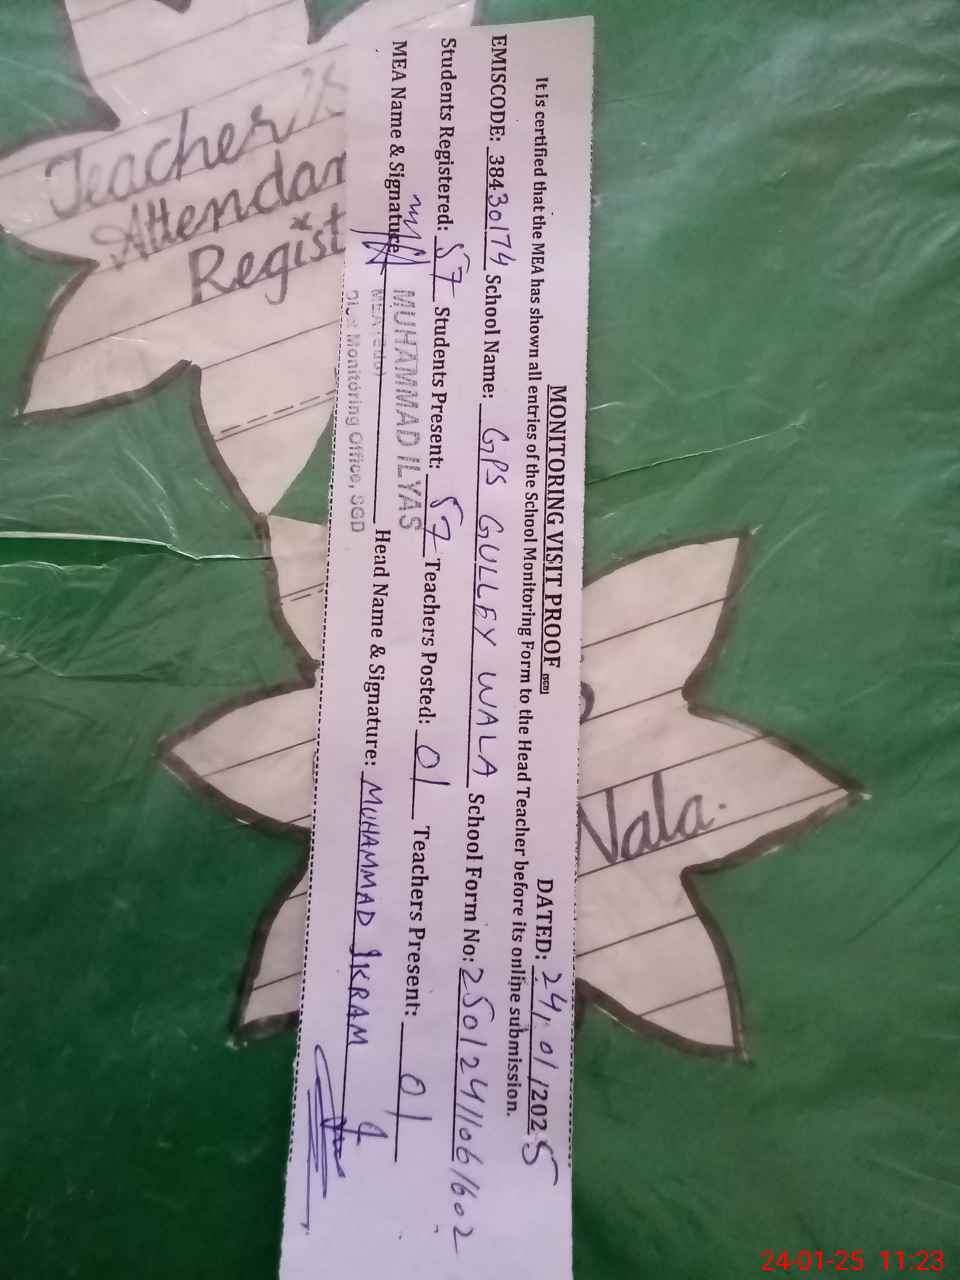 Teacher's
Attendan
Regist
MONITORING VISIT PROOF (SGD) DATED: 24/01/2025
It is certified that the MEA has shown all entries of the School Monitoring Form to the Head Teacher before its online submission.
EMISCODE: 38430174 School Name: GPS GULLEY WALA School Form No: 25012411061602
Students Registered: 57 Students Present: 57 Teachers Posted: 01 Teachers Present: 01
MEA Name & Signature Head Name & Signature: MUHAMMAD IKRAM
MUHAMMAD ILYAS
MEA (Edu)
Monitoring Office, SGD
Wala.
24-01-25 11:23